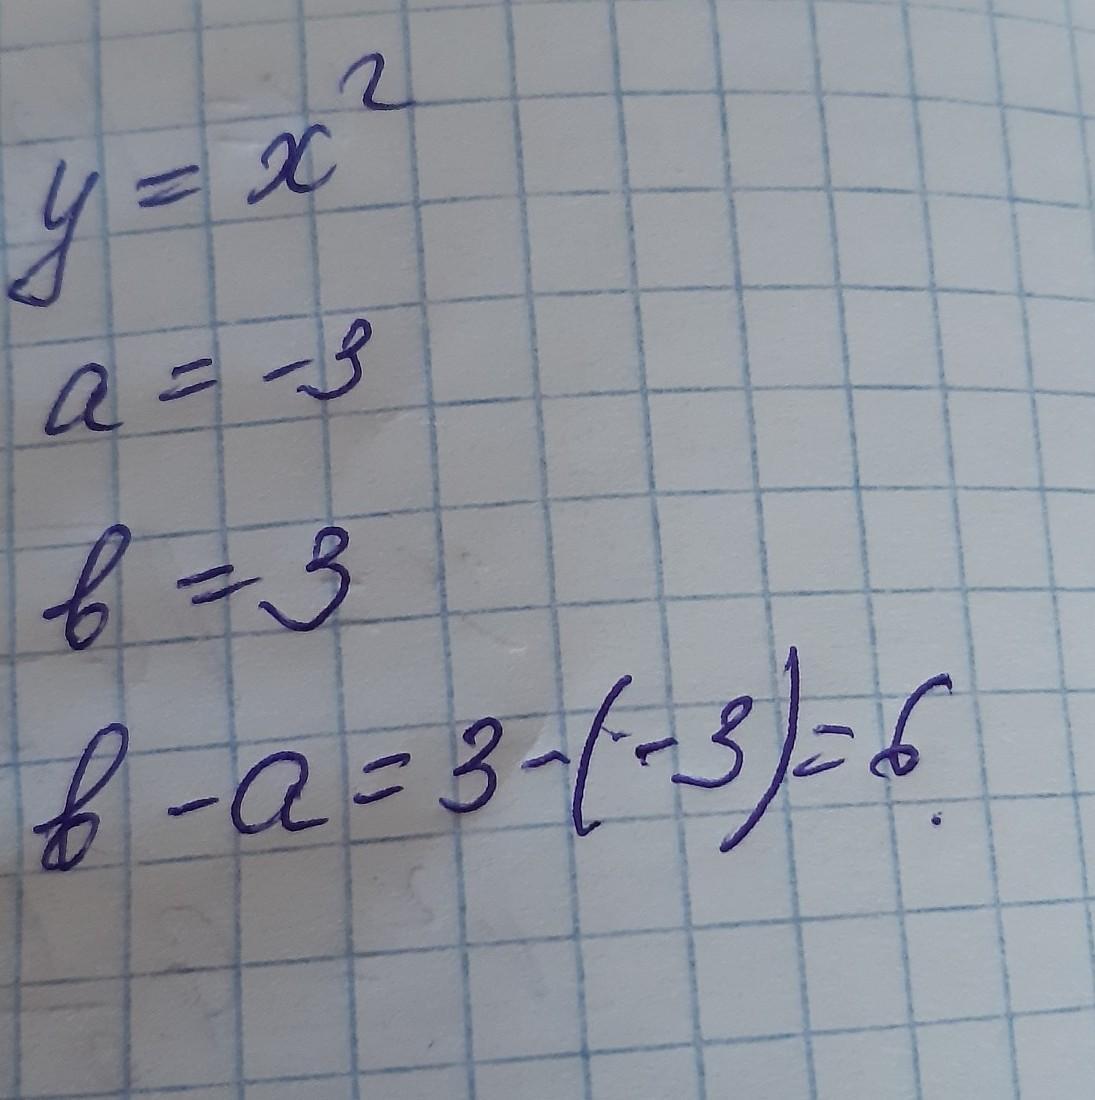 y = x²
a = -3
b = 3
b - a = 3 - (-3) = 6.